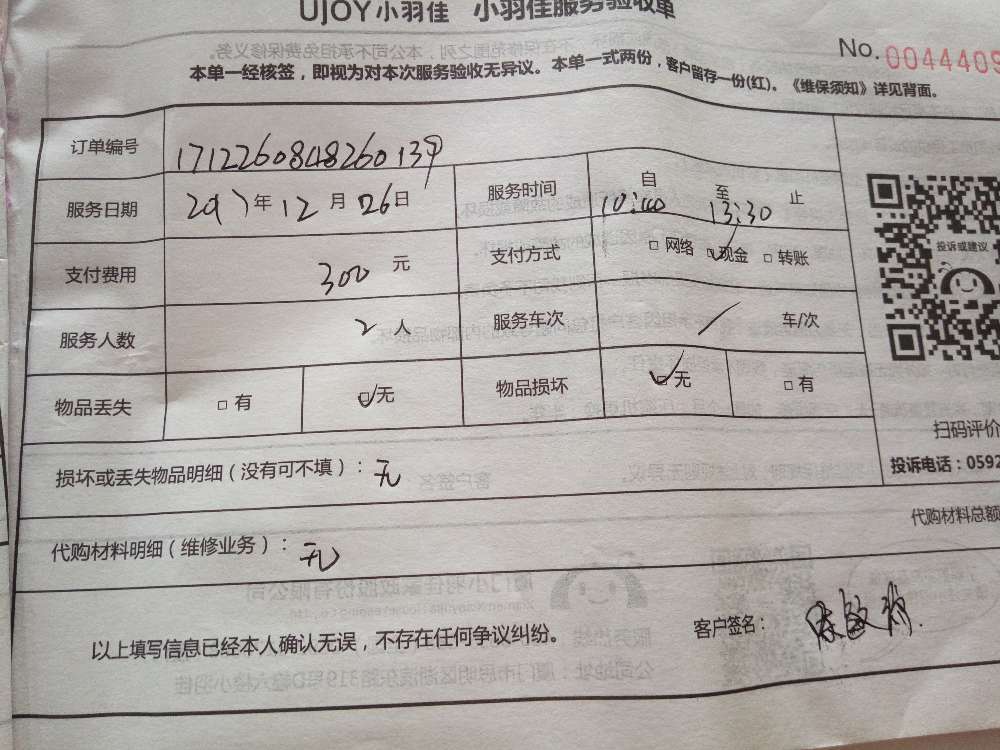 UJOY小羽佳 小羽佳服务验收单
No. 0044409
本单一经核签，即视为对本次服务验收无异议。本单一式两份，客户留存一份(红)。《维保须知》详见背面。
订单编号 171226084826013
服务日期 2017年12月26日 服务时间 自 10:40 至 13:30 止
支付费用 300 元 支付方式 □网络 □现金 □转账
服务人数 2 人 服务车次 / 车/次
物品丢失 □有 □无 物品损坏 □无 □有
投诉或建议
扫码评价
投诉电话：0592
损坏或丢失物品明细（没有可不填）：无
代购材料总额
代购材料明细（维修业务）：无
以上填写信息已经本人确认无误，不存在任何争议纠纷。
客户签名：